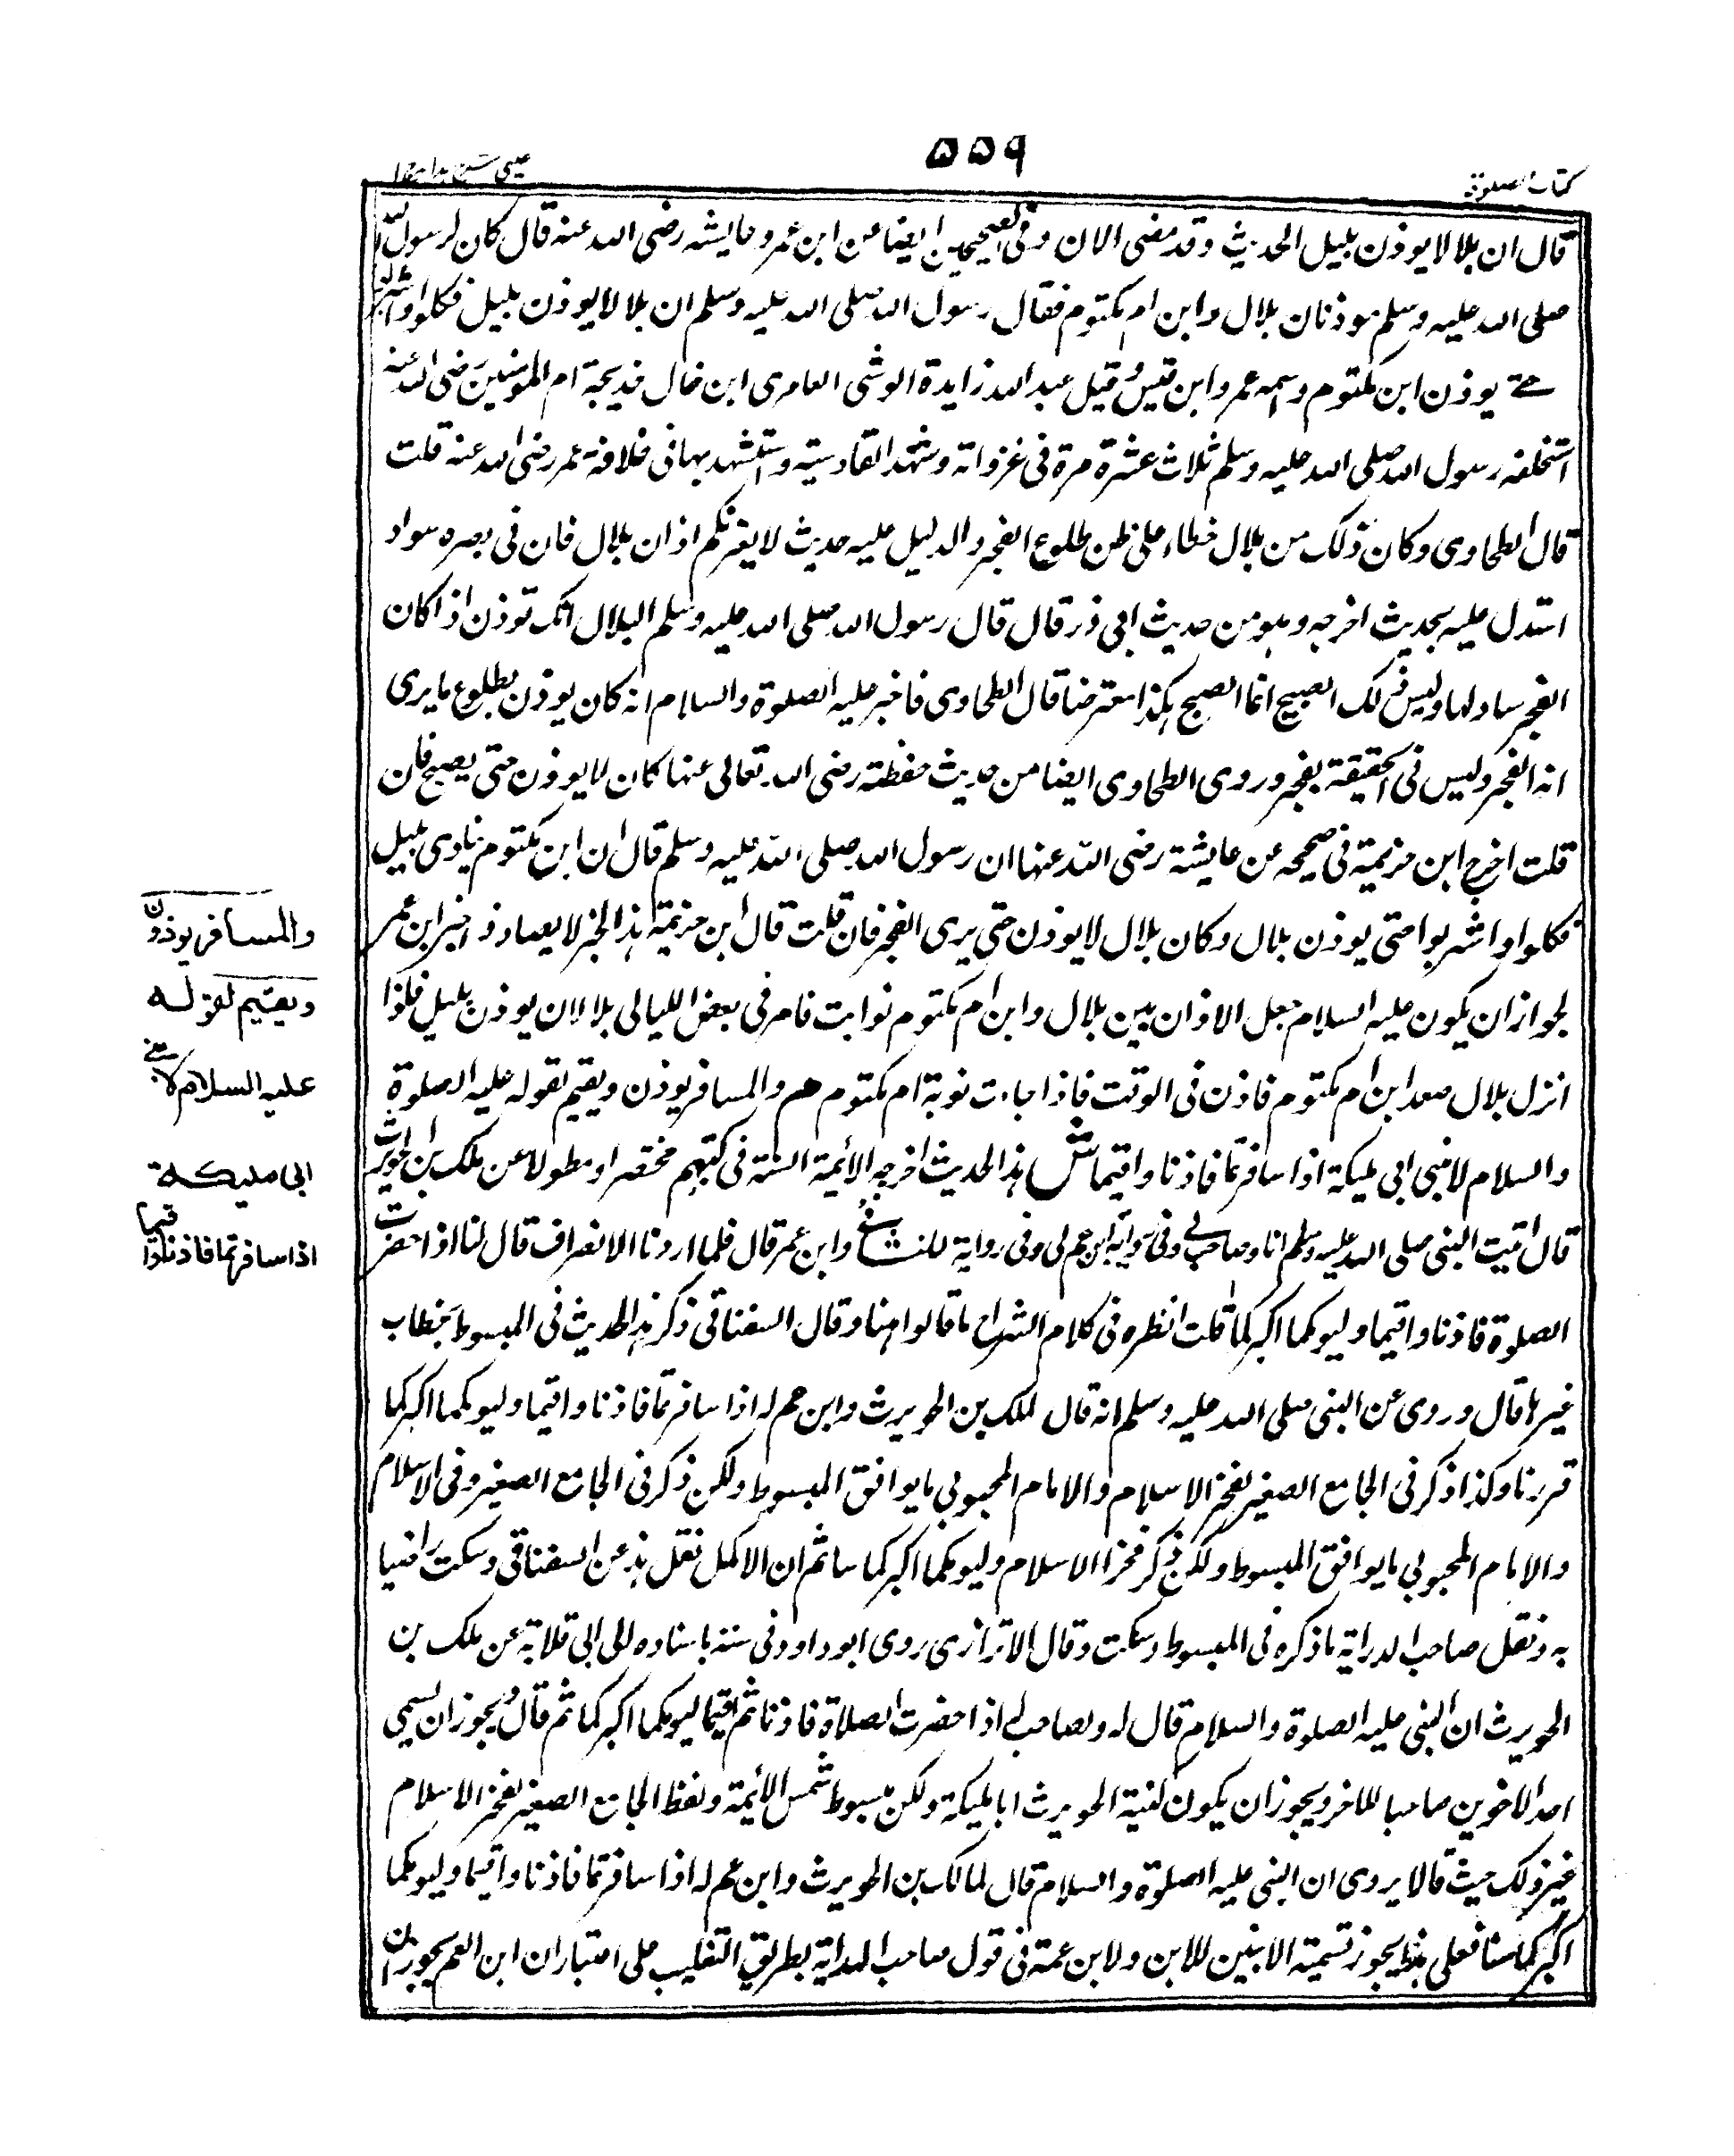 ۵۵۹
كتاب الصلوة
عينى شرح هدايه ج١
قال ان بلالا يوذن بليل الحديث وقد مضى الان وفى الصحيحين ايضا عن ابن عمر وعايشه رضى الله عنه قال كان لرسول الله
صلى الله عليه وسلم موذنان بلال وابن ام مكتوم فقال رسول الله صلى الله عليه وسلم ان بلالا يوذن بليل فكلوا واشربوا
حتے يوذن ابن مكتوم واسمه عمرو ابن قيس وقيل عبد الله زايدة الوشى العامرى ابن خال خديجة ام المؤمنين رضى الله عنه
استخلفه رسول الله صلى الله عليه وسلم ثلاث عشرة مرة فى غزواته وشهد القادسية واستشهد بها فى خلافة عمر رضى الله عنه قلت
قال الطحاوى وكان ذلك من بلال خطاء على ظن طلوع الفجر والدليل عليه حديث لا يغرنكم اذان بلال فان فى بصره سواد
استدل عليه بحديث اخرجه وهو من حديث ابى ذر قال قال رسول الله صلى الله عليه وسلم البلال انك توذن اذا كان
الفجر ساولها وليس ذلك الصبح انما الصبح هكذا معترضا قال الطحاوى فاخبر عليه الصلوة والسلام انه كان يوذن بطلوع ما يرى
انه الفجر وليس فى الحقيقة بفجر وروى الطحاوى ايضا من حديث حفظة رضى الله تعالى عنها كان لا يوذن حتى يصبح فان
قلت اخرج ابن خزيمة فى صحيحه عن عايشة رضى الله عنها ان رسول الله صلى الله عليه وسلم قال ان ابن مكتوم ينادى بليل
فكلوا واشربوا حتى يوذن بلال وكان بلال لا يوذن حتى يرى الفجر فان قلت قال ابن خزيمة هذا الخبر لا يعارض خبر ابن عمر
لجواز ان يكون عليه السلام جعل الاذان بين بلال وابن ام مكتوم نوابت فامر فى بعض الليالى بلالا ان يوذن بليل فاذا
انزل بلال صعد ابن ام مكتوم فاذن فى الوقت فاذا جاءت نوبة ام مكتوم هم والمسافر يوذن ويقيم لقوله عليه الصلوة
والسلام لابنى ابى مليكة اذا سافرتما فاذنا واقيما ش هذا الحديث اخرجه الائمة الستة فى كتبهم مختصرا ومطولا عن ملك بن الحويرث
قال اتيت النبى صلى الله عليه وسلم انا وصاحب لى وفى رواية ابن عم لى وفى رواية للنسائى وابن عمر قال فلما اردنا الانصراف قال لنا اذا حضرت
الصلوة فاذنا واقيما وليومكما اكبركما قلت انظره فى كلام الشراح ما قالوا هنا وقال السغناقى ذكر هذا الحديث فى المبسوط بخطاب
غيرها قال وروى عن النبى صلى الله عليه وسلم انه قال لملك بن الحويرث وابن عم له اذا سافرتما فاذنا واقيما وليومكما اكبركما
قررنا وكذا ذكر فى الجامع الصغير لفخر الاسلام والامام المحبوبى ما يوافق المبسوط ولكن ذكر فى الجامع الصغير وفى الاسلام
والامام المحبوبى ما يوافق المبسوط ولكن ذكر فخر الاسلام وليومكما اكبركما سنا ثم ان الاكمل نقل هذ عن السغناقى وسكت راضيا
به ونقل صاحب الدراية ما ذكره فى المبسوط وسكت وقال الاترازى روى ابو داود فى سننه باسناده الى ابى قلابة عن ملك بن
الحويرث ان النبى عليه الصلوة والسلام قال له ولصاحب له اذا حضرت الصلاة فاذنا ثم اقيما ليومكما اكبركما ثم قال ويجوز ان يسمى
احد الاخوين صاحبا للاخر ويجوز ان يكون كنية الحويرث ابا مليكة ولكن مبسوط شمس الائمة ولفظ الجامع الصغير لفخر الاسلام
غير ذلك حيث قالا يروى ان النبى عليه الصلوة والسلام قال لمالك بن الحويرث وابن عم له اذا سافرتما فاذنا واقيما وليومكما
اكبركما سنا فعلى هذا يجوز تسمية الابنين للابن ولابن عمة فى قول صاحب الهداية بطريق التغليب على اعتبار ان ابن العم يجوز ان
والمسافر يوذن
ويقيم لقوله
عليه السلام لابنے
ابى مليكة
اذا سافرتما فاذنا واقيما